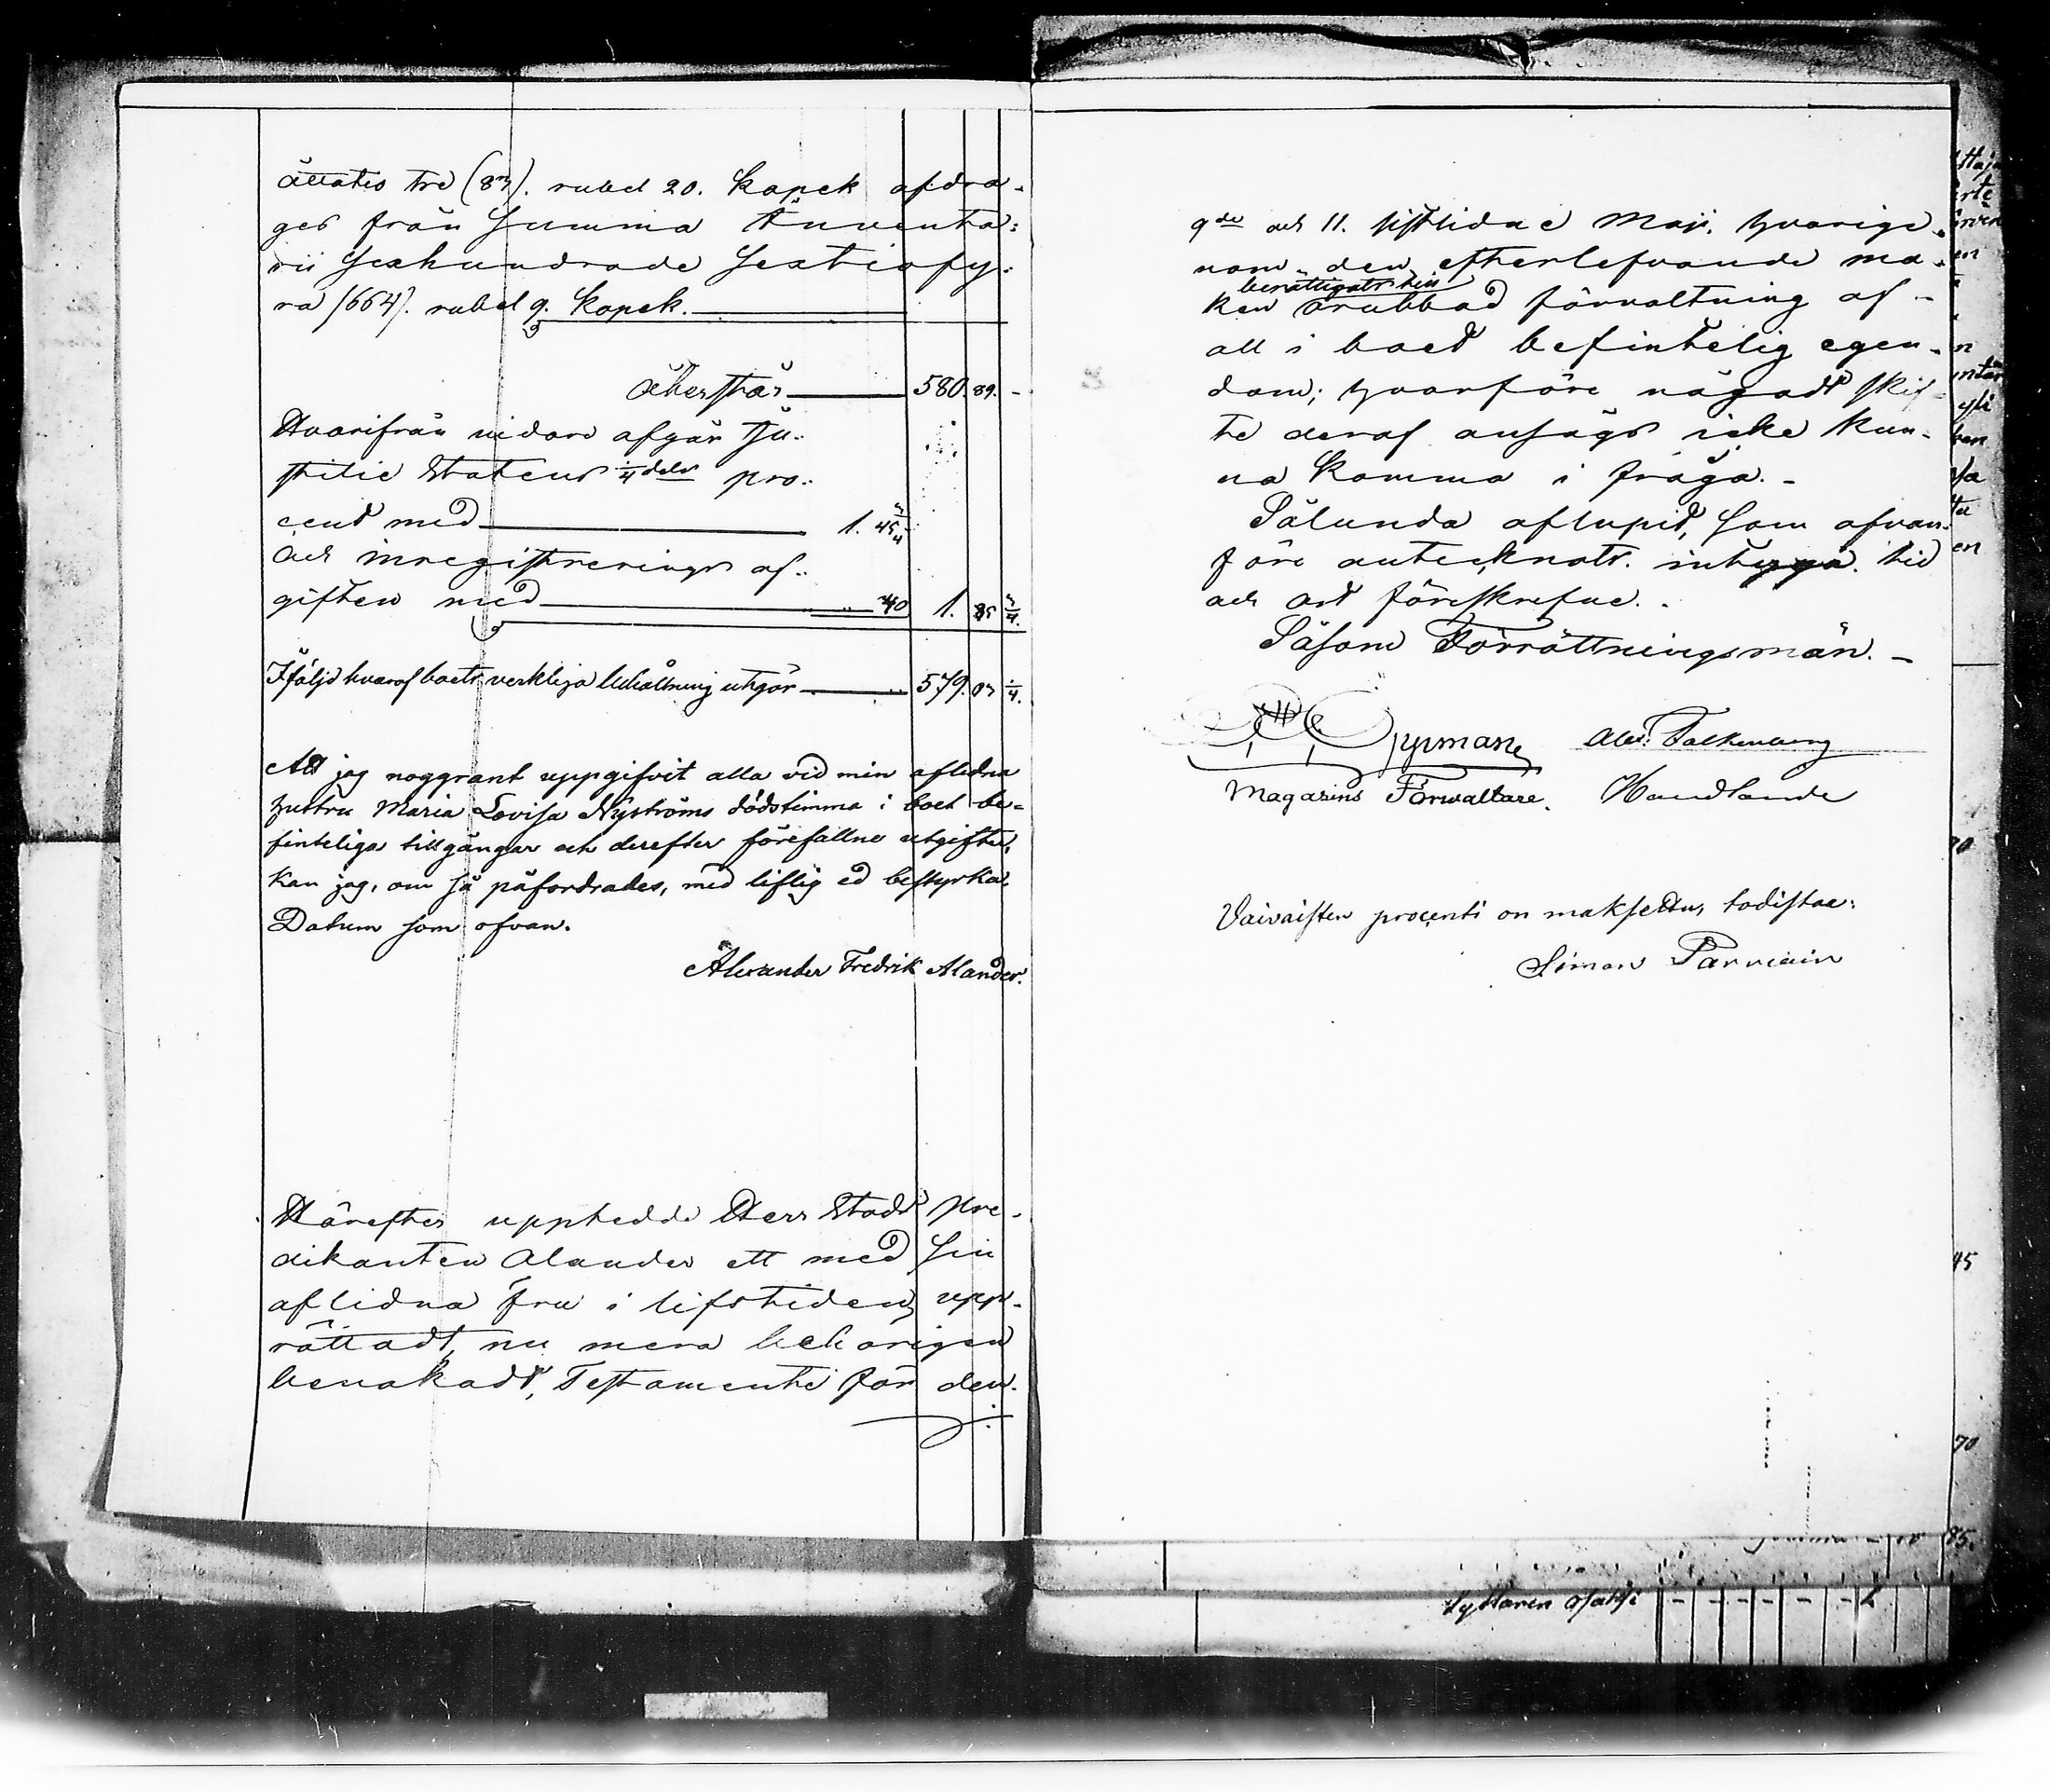 åttatio tre (83). rubel 20. kopek afdra-
ges från Summa Inventa:
rii Sexhundrade Sextiofy:
ra (664). rubel 9. kopek.
Återstår 580. 89. -
Hvarifrån vidare afgår Ju-
stitie Statens 1/4 dels pro-
cent med 1. 45 3/4
och inregistrerings af-
giften med " 40 1. 85 3/4.
Iföljd hvaraf boets verkliga behållning utgör 579. 03 1/4.
Att jag noggrant uppgifvit alla vid min aflidna
hustru Maria Lovisa Nyströms dödstimma i boet be-
finteliga tillgångar och derefter förefallne utgifter,
kan jag, om så påfordrades, med liflig ed bestyrka.
Datum som ofvan.
Alexander Fredrik Alander.
Härefter uppteddе Herr Stads pre-
dikanten Alander ett med Sin
aflidna fru i lifstiden upp-
rättadt, nu mera behörigen
bevakadt, Testamente för den.
9de och 11. sistlidne Maji, hvarige-
nom den efterlefvande ma-
berättigats till
ken orubbad förvaltning af
all i boet befintelig egen-
dom; hvarföre någodt skif-
te deraf ansågs icke kun-
na komma i fråga. -
Sålunda aflupid, som ofvan-
före antecknats. intyga. tid
och ort föreskrefne.
Såsom Förrättningsmän. -
Alex: Falkenberg
Magasins Förwaltare. Handlande
Vaivaisten procenti on maksettu, todistaa:
Simon Parviain